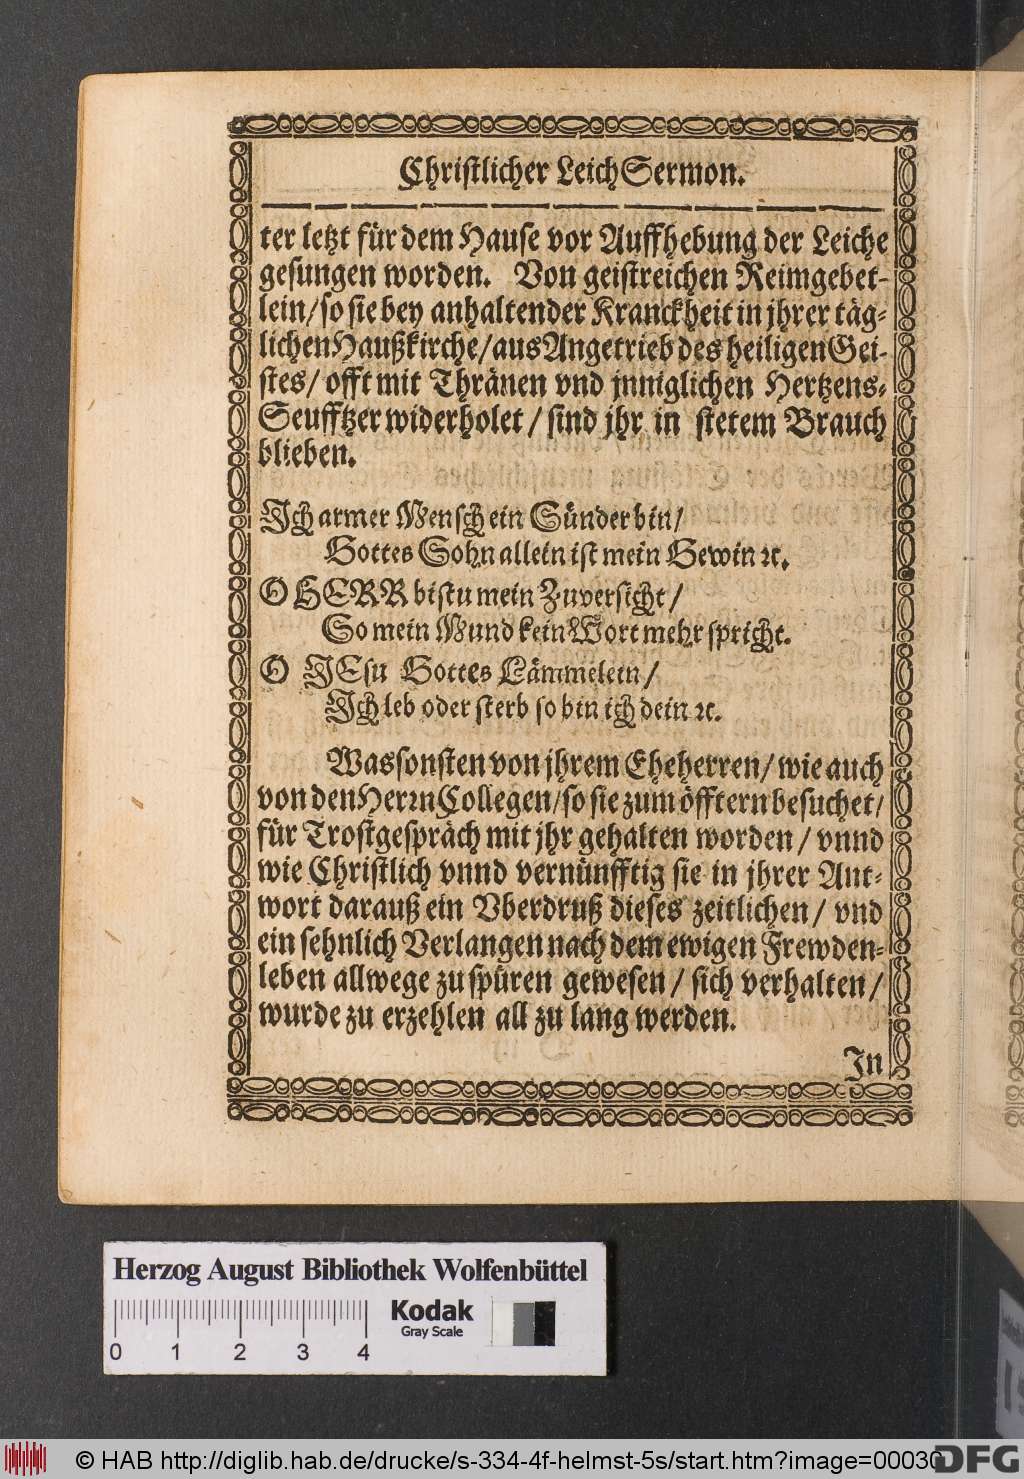 Christlicher Leich Sermon.
ter letzt für dem Hause vor Auffhebung der Leiche
gesungen worden. Von geistreichen Reimgebet-
lein/ so sie bey anhaltender Kranckheit in jhrer täg-
lichen Haußkirche/ aus Angetrieb des heiligen Gei-
stes/ offt mit Thränen vnd jnniglichen Hertzens-
Seufftzer widerholet / sind jhr in stetem Brauch
blieben.
Ich armer Mensch ein Sünder bin/
Gottes Sohn allein ist mein Gewin ꝛc.
O HERR bistu mein Zuversicht /
So mein Mund kein Wort mehr spricht.
O JEsu Gottes Lämmelein /
Ich leb oder sterb so bin ich dein ꝛc.
Was sonsten von jhrem Eheherren/ wie auch
von den Herꝛn Collegen/ so sie zum öfftern besuchet/
für Trostgespräch mit jhr gehalten worden / vnnd
wie Christlich vnnd vernünfftig sie in jhrer Ant-
wort darauß ein Vberdruß dieses zeitlichen / vnd
ein sehnlich Verlangen nach dem ewigen Frewden-
leben allwege zu spüren gewesen / sich verhalten /
wurde zu erzehlen all zu lang werden.
In
Herzog August Bibliothek Wolfenbüttel
Kodak
Gray Scale
0 1 2 3 4
© HAB http://diglib.hab.de/drucke/s-334-4f-helmst-5s/start.htm?image=00030
DFG